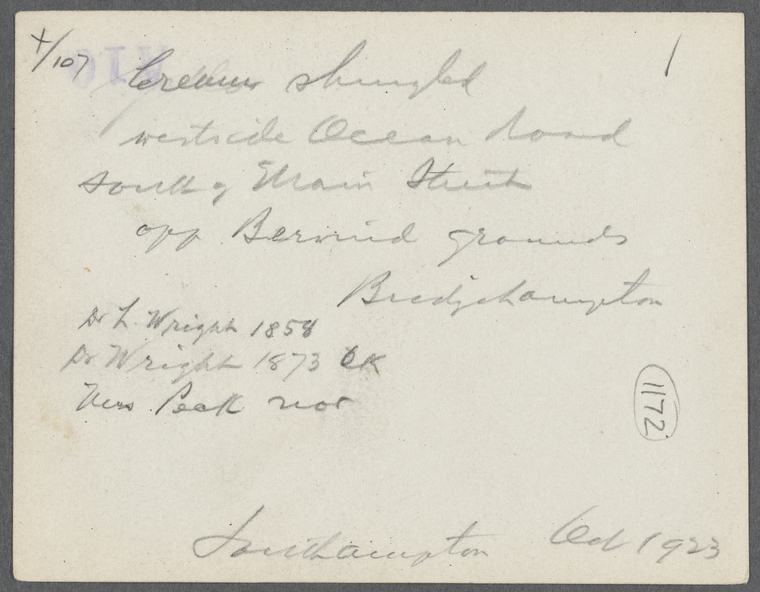 X/107
1
shingled
westside Ocean Road
south of Main Street
opp Berwind grounds
Bridgehampton
Dr L. Wright 1858
Dr Wright 1873 OK
Mrs. Peck now
1172
Southampton Oct 1923